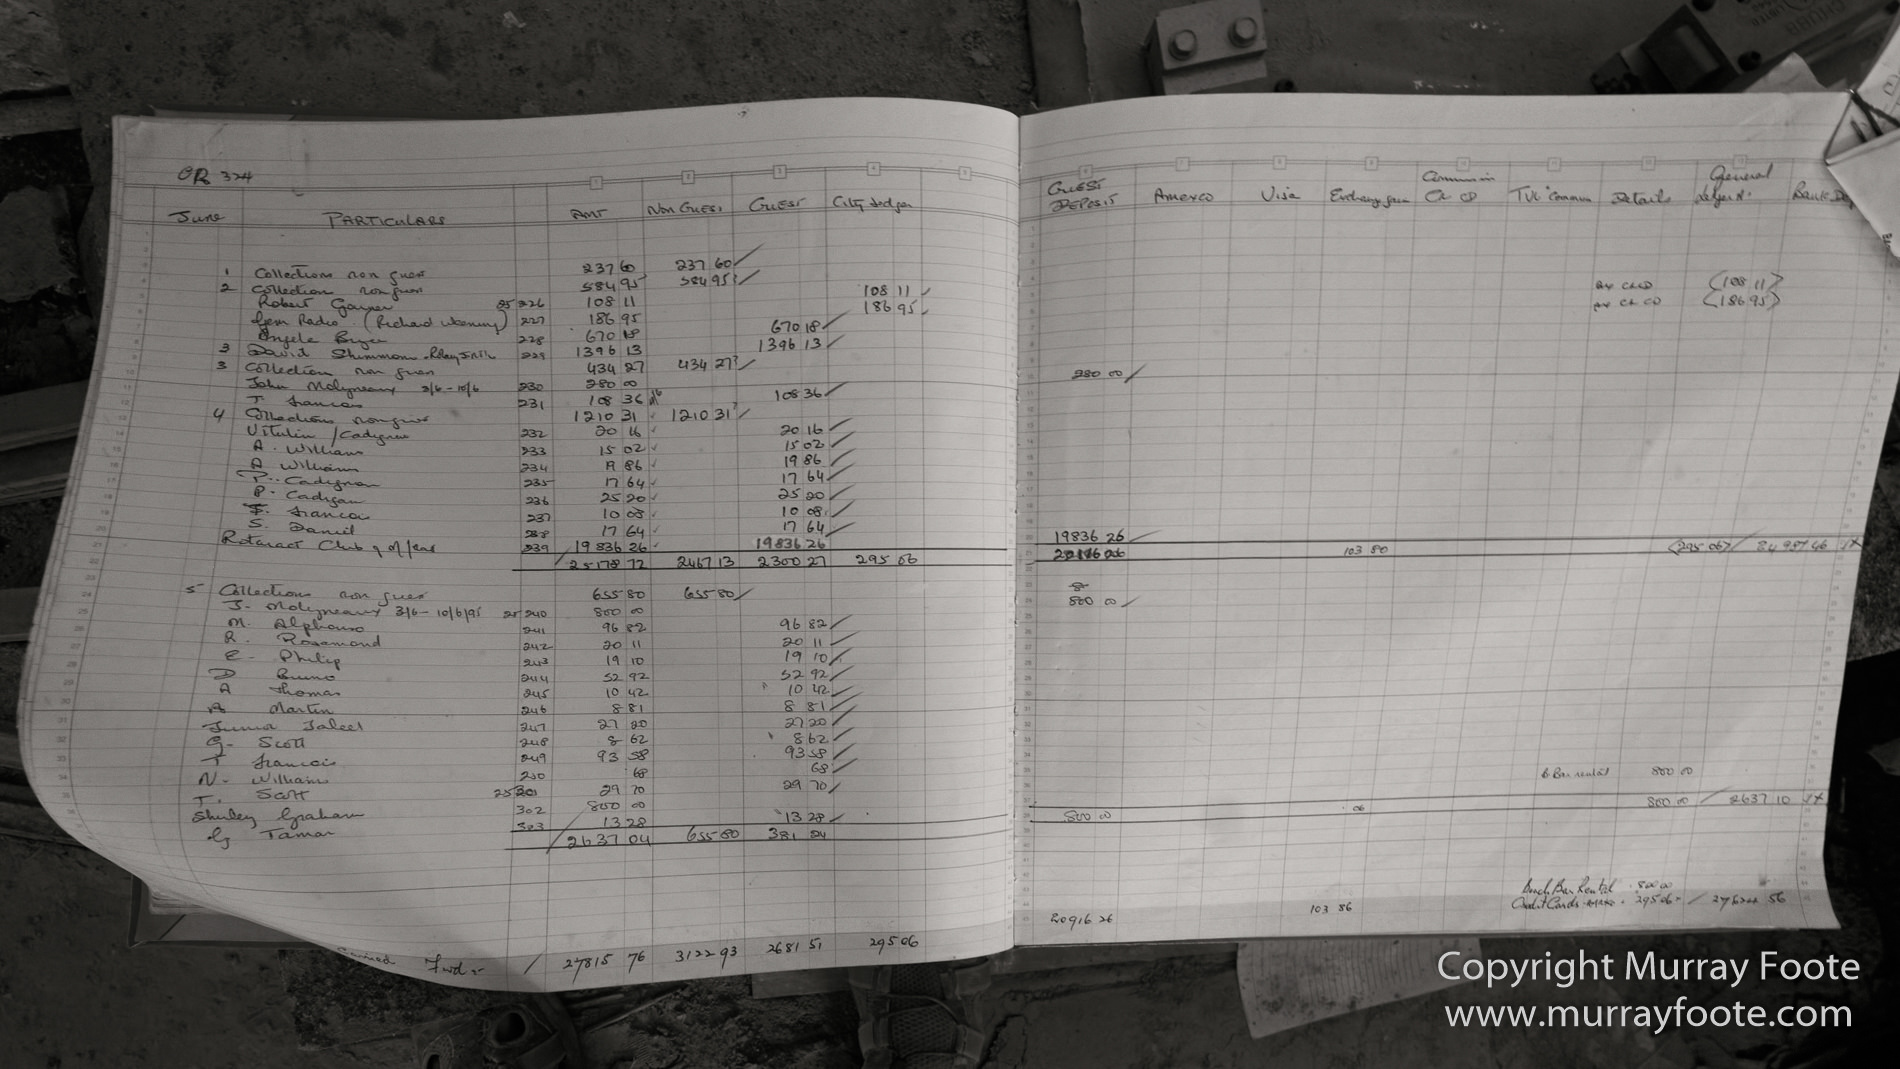 OR 324
June PARTICULARS AMT Non Guest GUEST City Ledger GUEST DEPOSIT Amexco Visa Details General Ledger
1 Collections non guest 237 60 237 60
2 Collection non guest 584 95 584 95
Robert 226 108 11 108 11 (108 11)
Gem Radio (Richard 227 186 95 186 95 (186 95)
Angela 228 670 18 670 18
3 David 229 1396 13 1396 13
3 Collection non guest 434 27 434 27
John Molyneaux 3/6-10/6 230 280 00 280 00
T. Francois 231 108 36 108 36
4 Collections non guest 1210 31 1210 31
232 20 16 20 16
A. William 233 15 02 15 02
A William 234 19 86 19 86
P. Cadigan 235 17 64 17 64
P. Cadigan 236 25 20 25 20
F. Francois 237 10 08 10 08
S. Daniel 238 17 64 17 64
Rotaract Club 239 19836 26 19836 26 19836 26
25178 72 2467 13 2300 27 295 06 103 80 (295 06)
5 Collections non guest 655 80 655 80
J. Molyneaux 3/6-10/6/95 240 800 00 800 00
M. Alphonso 241 96 82 96 82
R. Rosamond 242 20 11 20 11
E. Philip 243 19 10 19 10
D Bruno 244 52 92 52 92
A Thomas 245 10 42 10 42
Martin 246 8 81 8 81
Junior 247 27 20 27 20
G. Scott 248 8 62 8 62
T Francois 249 93 58 93 58
N. William 250 68 68
T. Scott 29 70 29 70 B. Bar rental 800 00
Shirley Graham 302 800 00
G Tamar 303 13 28 13 28
2637 04 655 80 381 24 800 00 06 800 00 2637 10
Beach Bar Rental 800 00
Credit Cards 295 06
Fwd 27815 76 3122 93 2681 51 295 06 20916 26 103 86
Copyright Murray Foote
www.murrayfoote.com